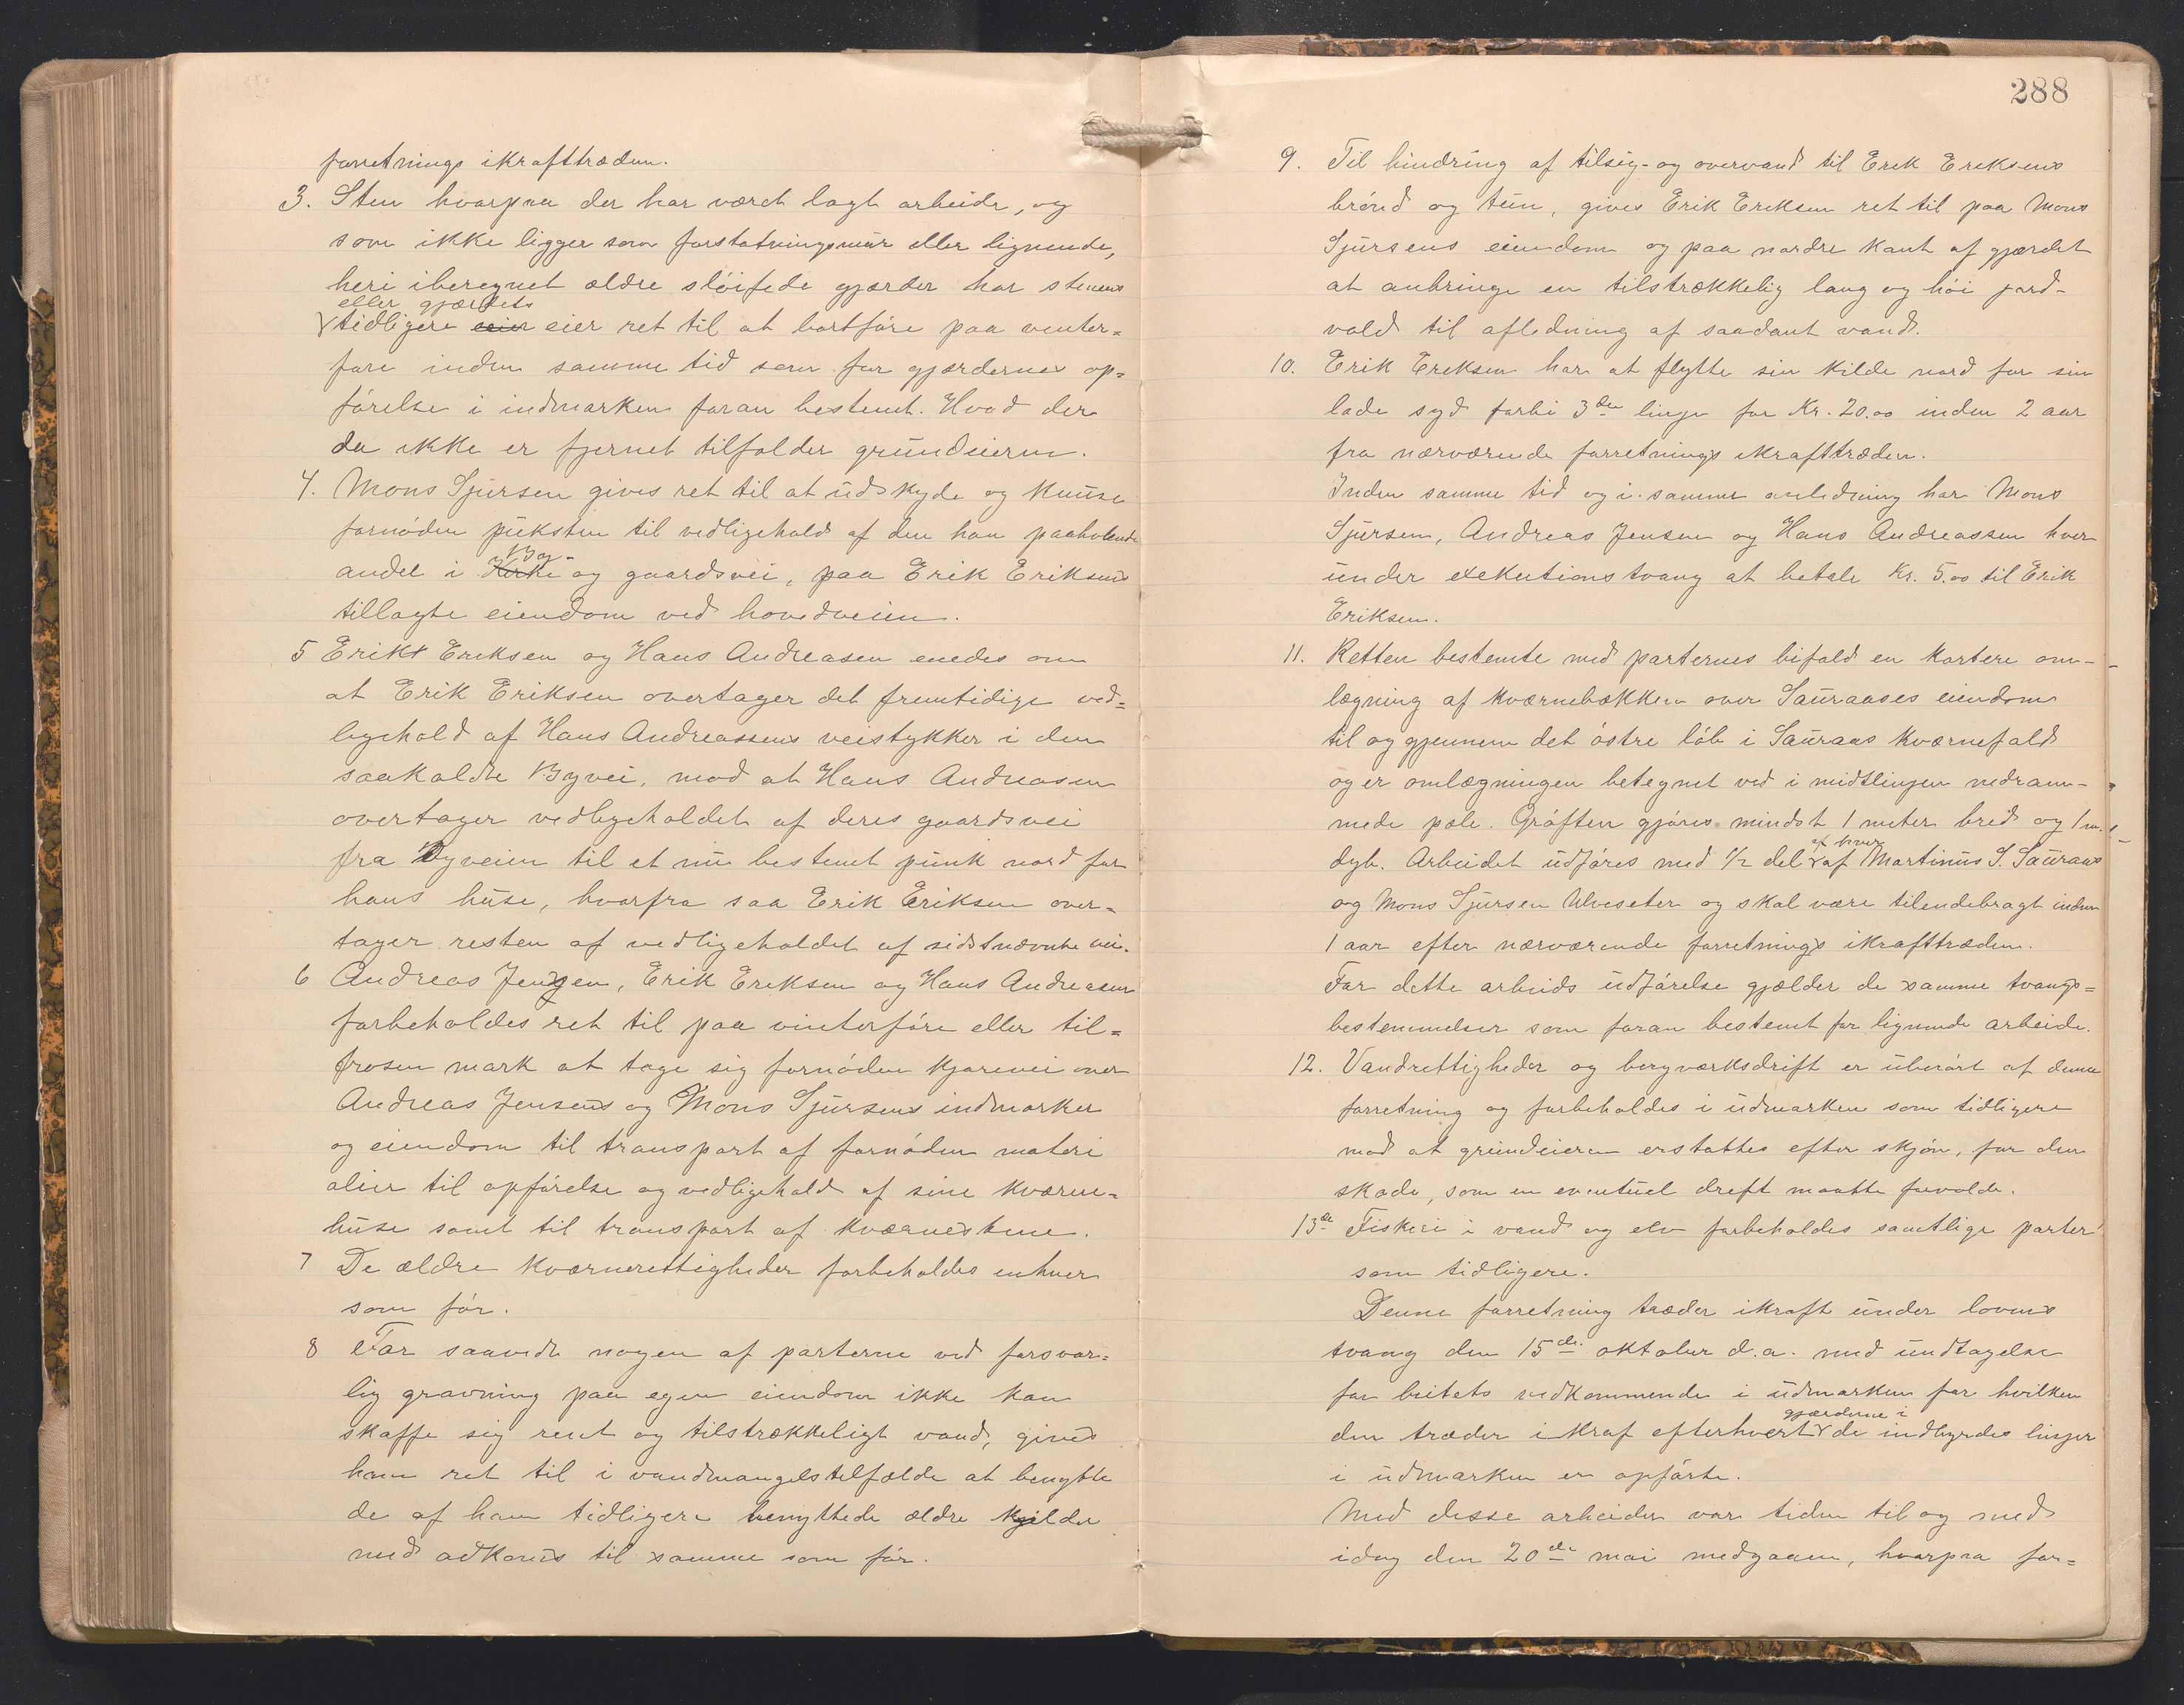 forretnings ikrafttræden.
3. Sten hvorpaa der har været lagt arbeide, og
som ikke ligger som forstøtningsmur eller lignende,
heri iberegnet ældre sløifede gjærder har stenens
eller gjærdets
tidligere eier eier ret til at bortføre paa vinter=
føre inden samme tid som for gjærdernes op=
førelse i indmarken foran bestemt. Hvad der
da ikke er fjernet tilfalder grundeieren.
4. Mons Sjursen gives ret til at udskyde og knuse
fornøden puksten til vedligehold af den ham paahvilende
By-
andel i Kirke og gaardsvei, paa Erik Eriksens
tillagte eiendom ved hovedveien.
5 Erik Eriksen og Hans Andreasen enedes om
at Erik Eriksen overtager det fremtidige ved=
ligehold af Hans Andreassens veistykker i den
saakaldte Byvei, mod at Hans Andreasen
overtager vedligeholdet af deres gaardsvei
fra Byveien til et nu bestemt punk nord for
hans huse, hvorfra saa Erik Eriksen over-
tager resten af vedligeholdet af sidstnævnte vei.
6 Andreas Jensen, Erik Eriksen og Hans Andreasen
forbeholdes ret til paa vinterføre eller til=
frosen mark at tage sig fornøden kjørevei over
Andreas Jensens og Mons Sjursens indmarker
og eiendom til transport af fornøden materi
alier til opførelse og vedligehold af sine kværne-
huse samt til transport af kværnestene.
7 De ældre kværnerettigheder forbeholdes enhver
som før.
8 For saavidt nogen af parterne ved forsvar=
lig gravning paa egen eiendom ikke kan
skaffe sig rent og tilstrækkeligt vand, gives
ham ret til i vandmangelstilfælde at benytte
de af ham tidligere benyttede ældre kjilder
med adkomst til samme som før.
288
9. Til hindring af tilsig- og overvand til Erik Eriksens
brønd og tun, gives Erik Eriksen ret til paa Mons
Sjursens eiendom og paa nordre kant af gjærdet
at anbringe en tilstrækkelig lang og høi jord-
vold til afledning af saadant vand.
10. Erik Eriksen har at flytte sin kilde nord for sin
lade syd forbi 3die linje for Kr. 20.00 inden 2 aar
fra nærværende forretnings ikrafttræden.
Inden samme tid og i samme anledning har Mons
Sjursen, Andreas Jensen og Hans Andreassen hver
under exekutionstvang at betale Kr. 5.00 til Erik
Eriksen.
11. Retten bestemte med parternes bifald en kortere om-
lægning af kværnebækken over Sauraases eiendom
til og gjennem det østre løb i Sauraas kværnefald
og er omlægningen betegnet ved i midtlinjen nedram-
mede pæle. Grøften gjøres mindst 1 meter bred og 1 m.
af hver
dyb. Arbeidet udføres med 1/2 del af Martinus S. Sauraas
og Mons Sjursen Ulveseter og skal være tilendebragt inden
1 aar efter nærværende forretnings ikrafttræden.
For dette arbeids udførelse gjælder de samme tvangs=
bestemmelser som foran bestemt for lignende arbeide.
12. Vandrettigheder og bergværksdrift er uberørt af denne
forretning og forbeholdes i udmarken som tidligere
mod at grundeieren erstattes efter skjøn, for den
skade, som en eventuel dreft maatte forvolde.
13de Fiskeri i vand og elv forbeholdes samtlige parter
som tidligere.
Denne forretning træder ikraft under lovens
tvang den 15de oktober d.a. med undtagelse
for beitets vedkommende i udmarken for hvilken
gjærderne i
den træder i kraf efterhvert de indbyrdes linjer
i udmarken er opførte.
Med disse arbeider var tiden til og med
idag den 20de mai medgaaen, hvorpaa for=